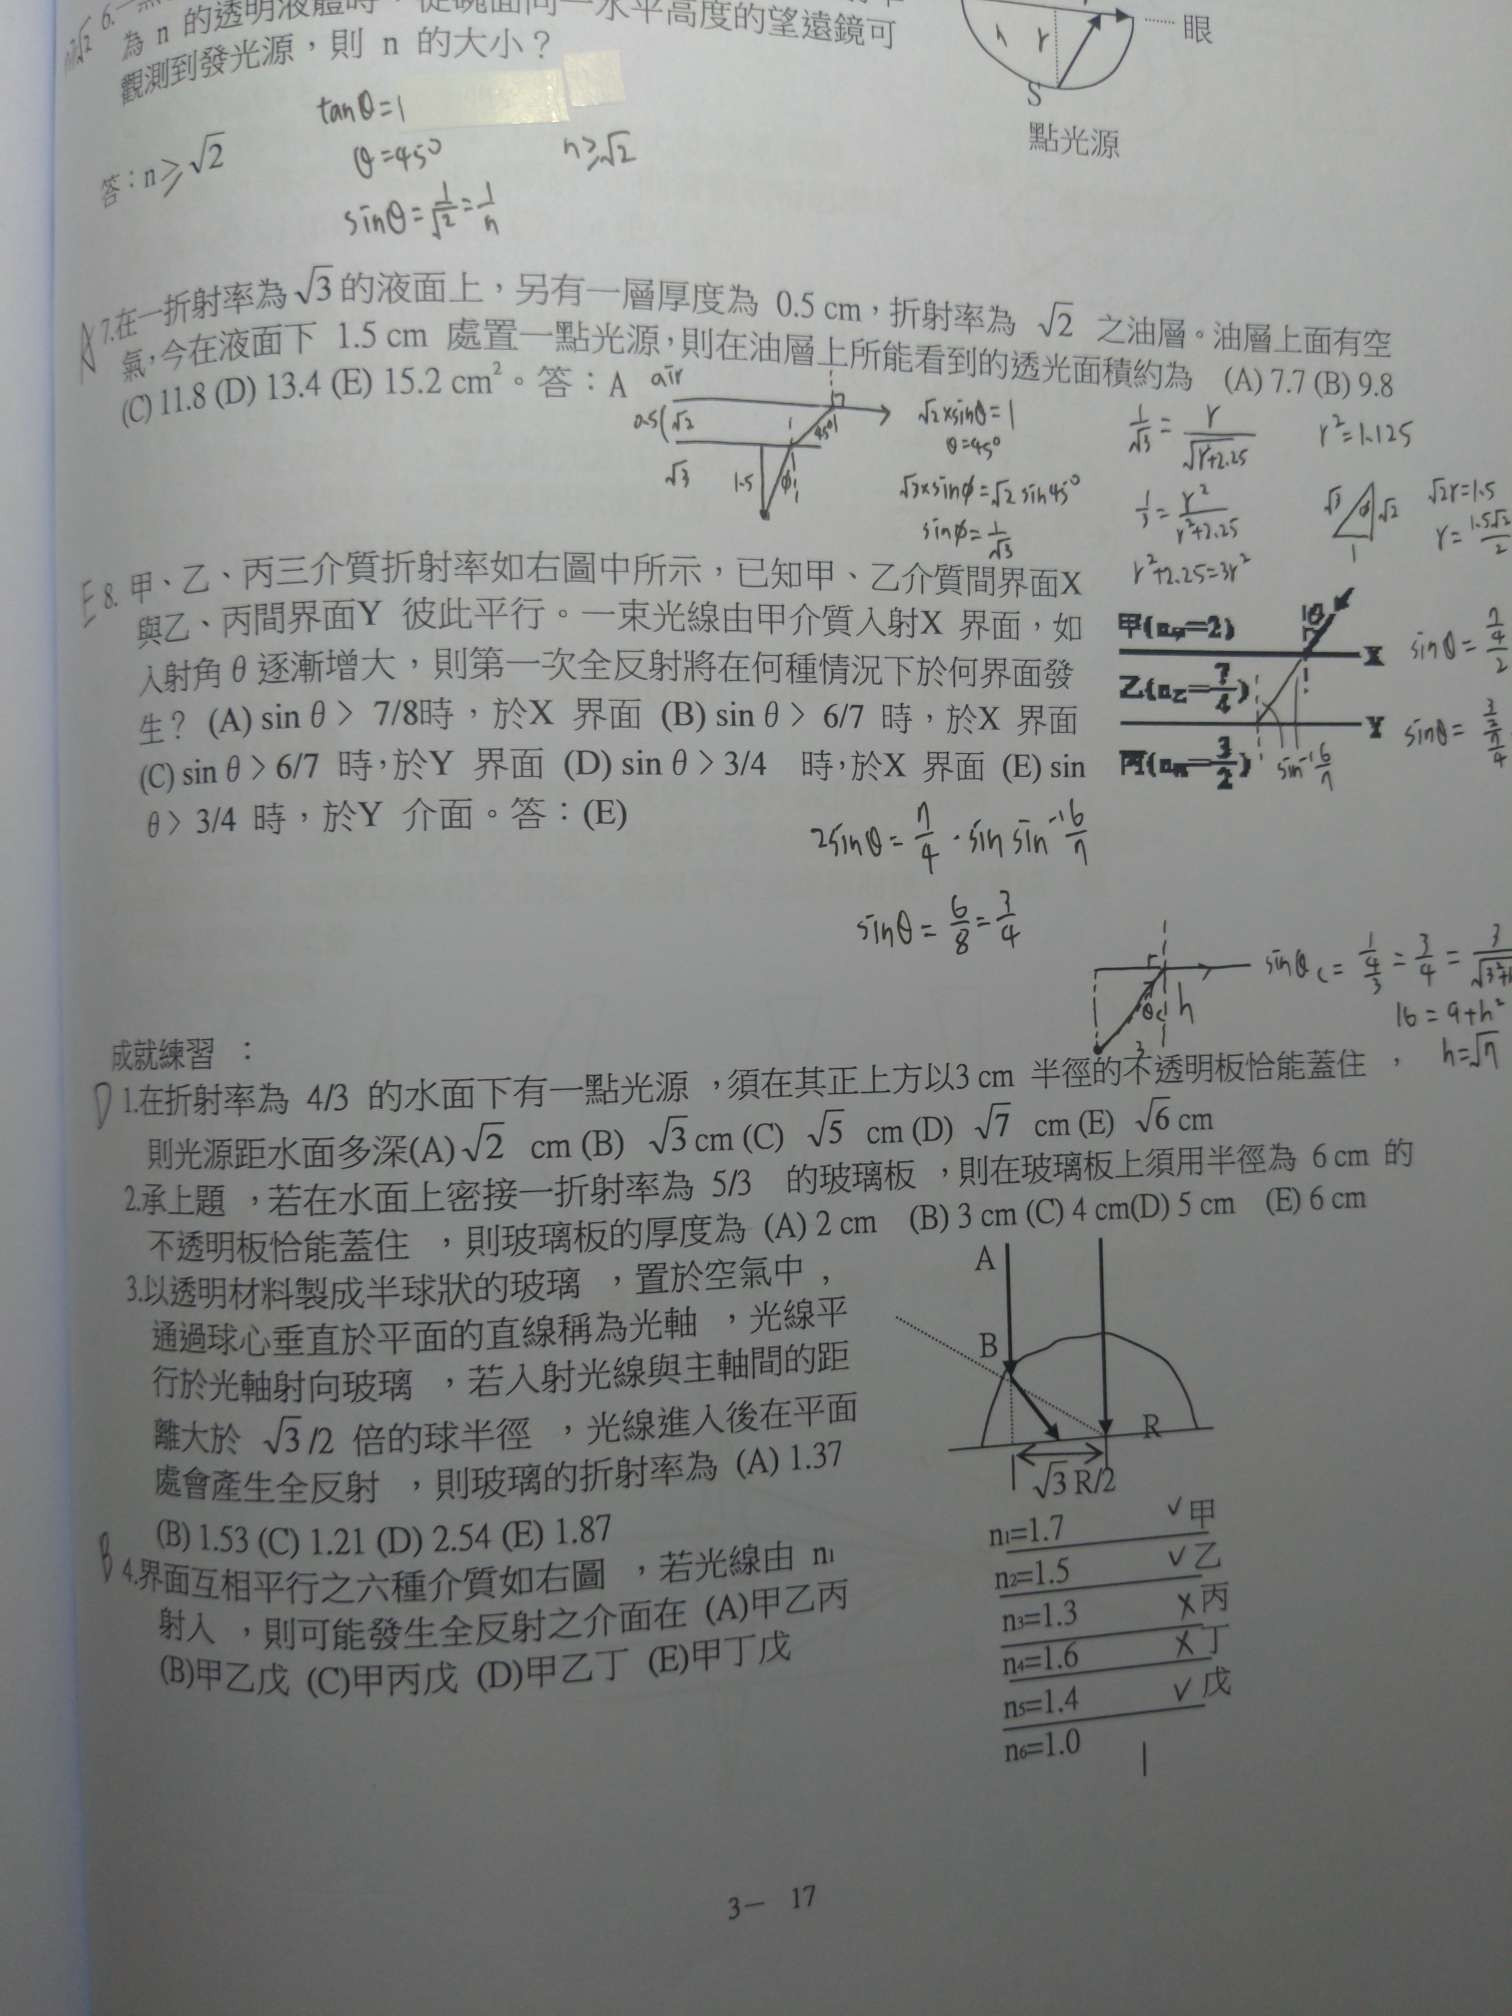 為 n 的透明液體時,從碗面同一水平高度的望遠鏡可
觀測到發光源,則 n 的大小?
眼
r
S
點光源
tanθ=1
θ=45°
n≥√2
sinθ=1/√2=1/n
答:n≥√2
A 7.在一折射率為√3的液面上,另有一層厚度為 0.5 cm,折射率為 √2 之油層。油層上面有空
氣,今在液面下 1.5 cm 處置一點光源,則在油層上所能看到的透光面積約為 (A) 7.7 (B) 9.8
(C) 11.8 (D) 13.4 (E) 15.2 cm²。答:A
air
0.5 √2
45°
√3
1.5
φ
√2×sinθ=1
θ=45°
√3×sinφ=√2 sin45°
sinφ=1/√3
1/√3=r/√r²+2.25
1/3=r²/r²+2.25
r²+2.25=3r²
r²=1.125
√3 φ √2
1
√2r=1.5
r=1.5√2/2
E 8. 甲、乙、丙三介質折射率如右圖中所示,已知甲、乙介質間界面X
與乙、丙間界面Y 彼此平行。一束光線由甲介質入射X 界面,如
入射角θ逐漸增大,則第一次全反射將在何種情況下於何界面發
生? (A) sinθ> 7/8時,於X 界面 (B) sinθ> 6/7 時,於X 界面
(C) sinθ> 6/7 時,於Y 界面 (D) sinθ> 3/4 時,於X 界面 (E) sin
θ> 3/4 時,於Y 介面。答:(E)
甲(n甲=2)
θ
X
乙(n乙=7/4)
Y
丙(n丙=3/2)
sin⁻¹6/7
sinθ=7/4/2
sinθ=3/2/7/4
2sinθ=7/4·sin sin⁻¹6/7
sinθ=6/8=3/4
θc h
3
sinθc=1/4/3=3/4=
16=9+h²
h=√7
成就練習 :
D 1.在折射率為 4/3 的水面下有一點光源 ,須在其正上方以3 cm 半徑的不透明板恰能蓋住 ,
則光源距水面多深(A)√2 cm (B) √3 cm (C) √5 cm (D) √7 cm (E) √6 cm
2.承上題 ,若在水面上密接一折射率為 5/3 的玻璃板 ,則在玻璃板上須用半徑為 6 cm 的
不透明板恰能蓋住 ,則玻璃板的厚度為 (A) 2 cm (B) 3 cm (C) 4 cm(D) 5 cm (E) 6 cm
3.以透明材料製成半球狀的玻璃 ,置於空氣中 ,
通過球心垂直於平面的直線稱為光軸 ,光線平
行於光軸射向玻璃 ,若入射光線與主軸間的距
離大於 √3/2 倍的球半徑 ,光線進入後在平面
處會產生全反射 ,則玻璃的折射率為 (A) 1.37
(B) 1.53 (C) 1.21 (D) 2.54 (E) 1.87
A
B
R
√3 R/2
B 4.界面互相平行之六種介質如右圖 ,若光線由 n₁
射入 ,則可能發生全反射之介面在 (A)甲乙丙
(B)甲乙戊 (C)甲丙戊 (D)甲乙丁 (E)甲丁戊
n₁=1.7 ✓甲
n₂=1.5 ✓乙
n₃=1.3 ×丙
n₄=1.6 ×丁
n₅=1.4 ✓戊
n₆=1.0
3- 17